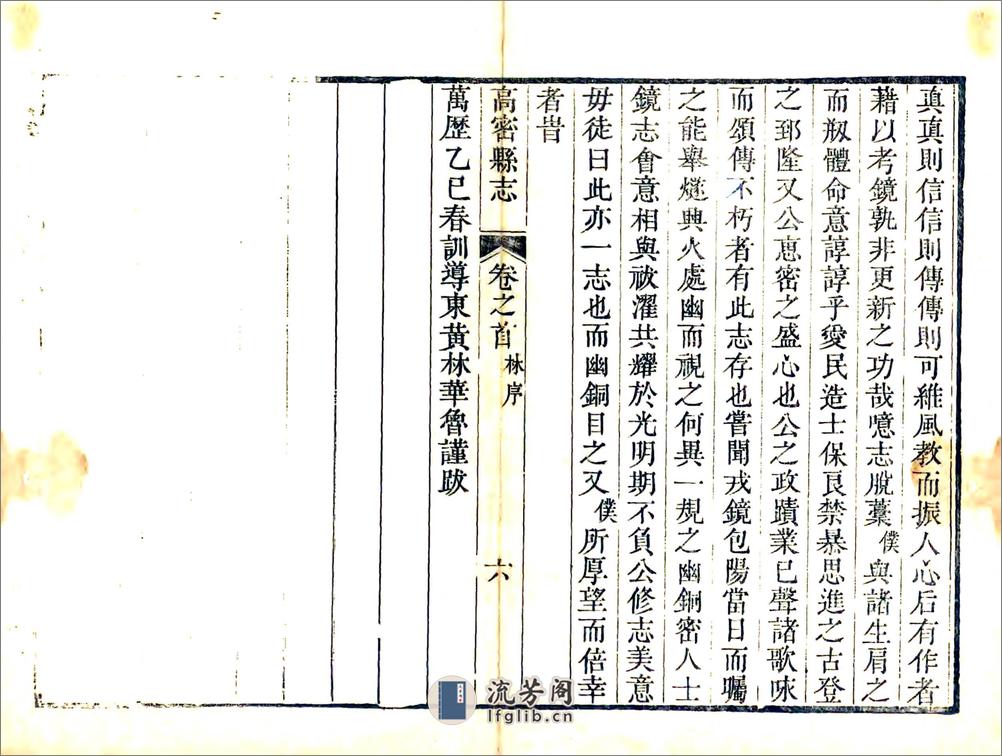 真真則信信則傳傳則可維風教而振人心后有作者
藉以考鏡孰非更新之功哉噫志脫藁僕與諸生肩之
而剏體命意諄諄乎愛民造士保良禁暴思進之古登
之郅隆又公惠密之盛心也公之政蹟業已聲諸歌咏
而頌傳不朽者有此志存也嘗聞戎鏡包陽當日而矚
之能舉燧興火處幽而視之何異一規之幽銅密人士
鏡志會意相與祓濯共耀於光明期不負公修志美意
毋徒曰此亦一志也而幽銅目之又僕所厚望而倍幸
者旹
高密縣志 卷之首 林序 六
萬歷乙巳春訓導東黃林華魯謹跋
流芳阁
lfglib.cn